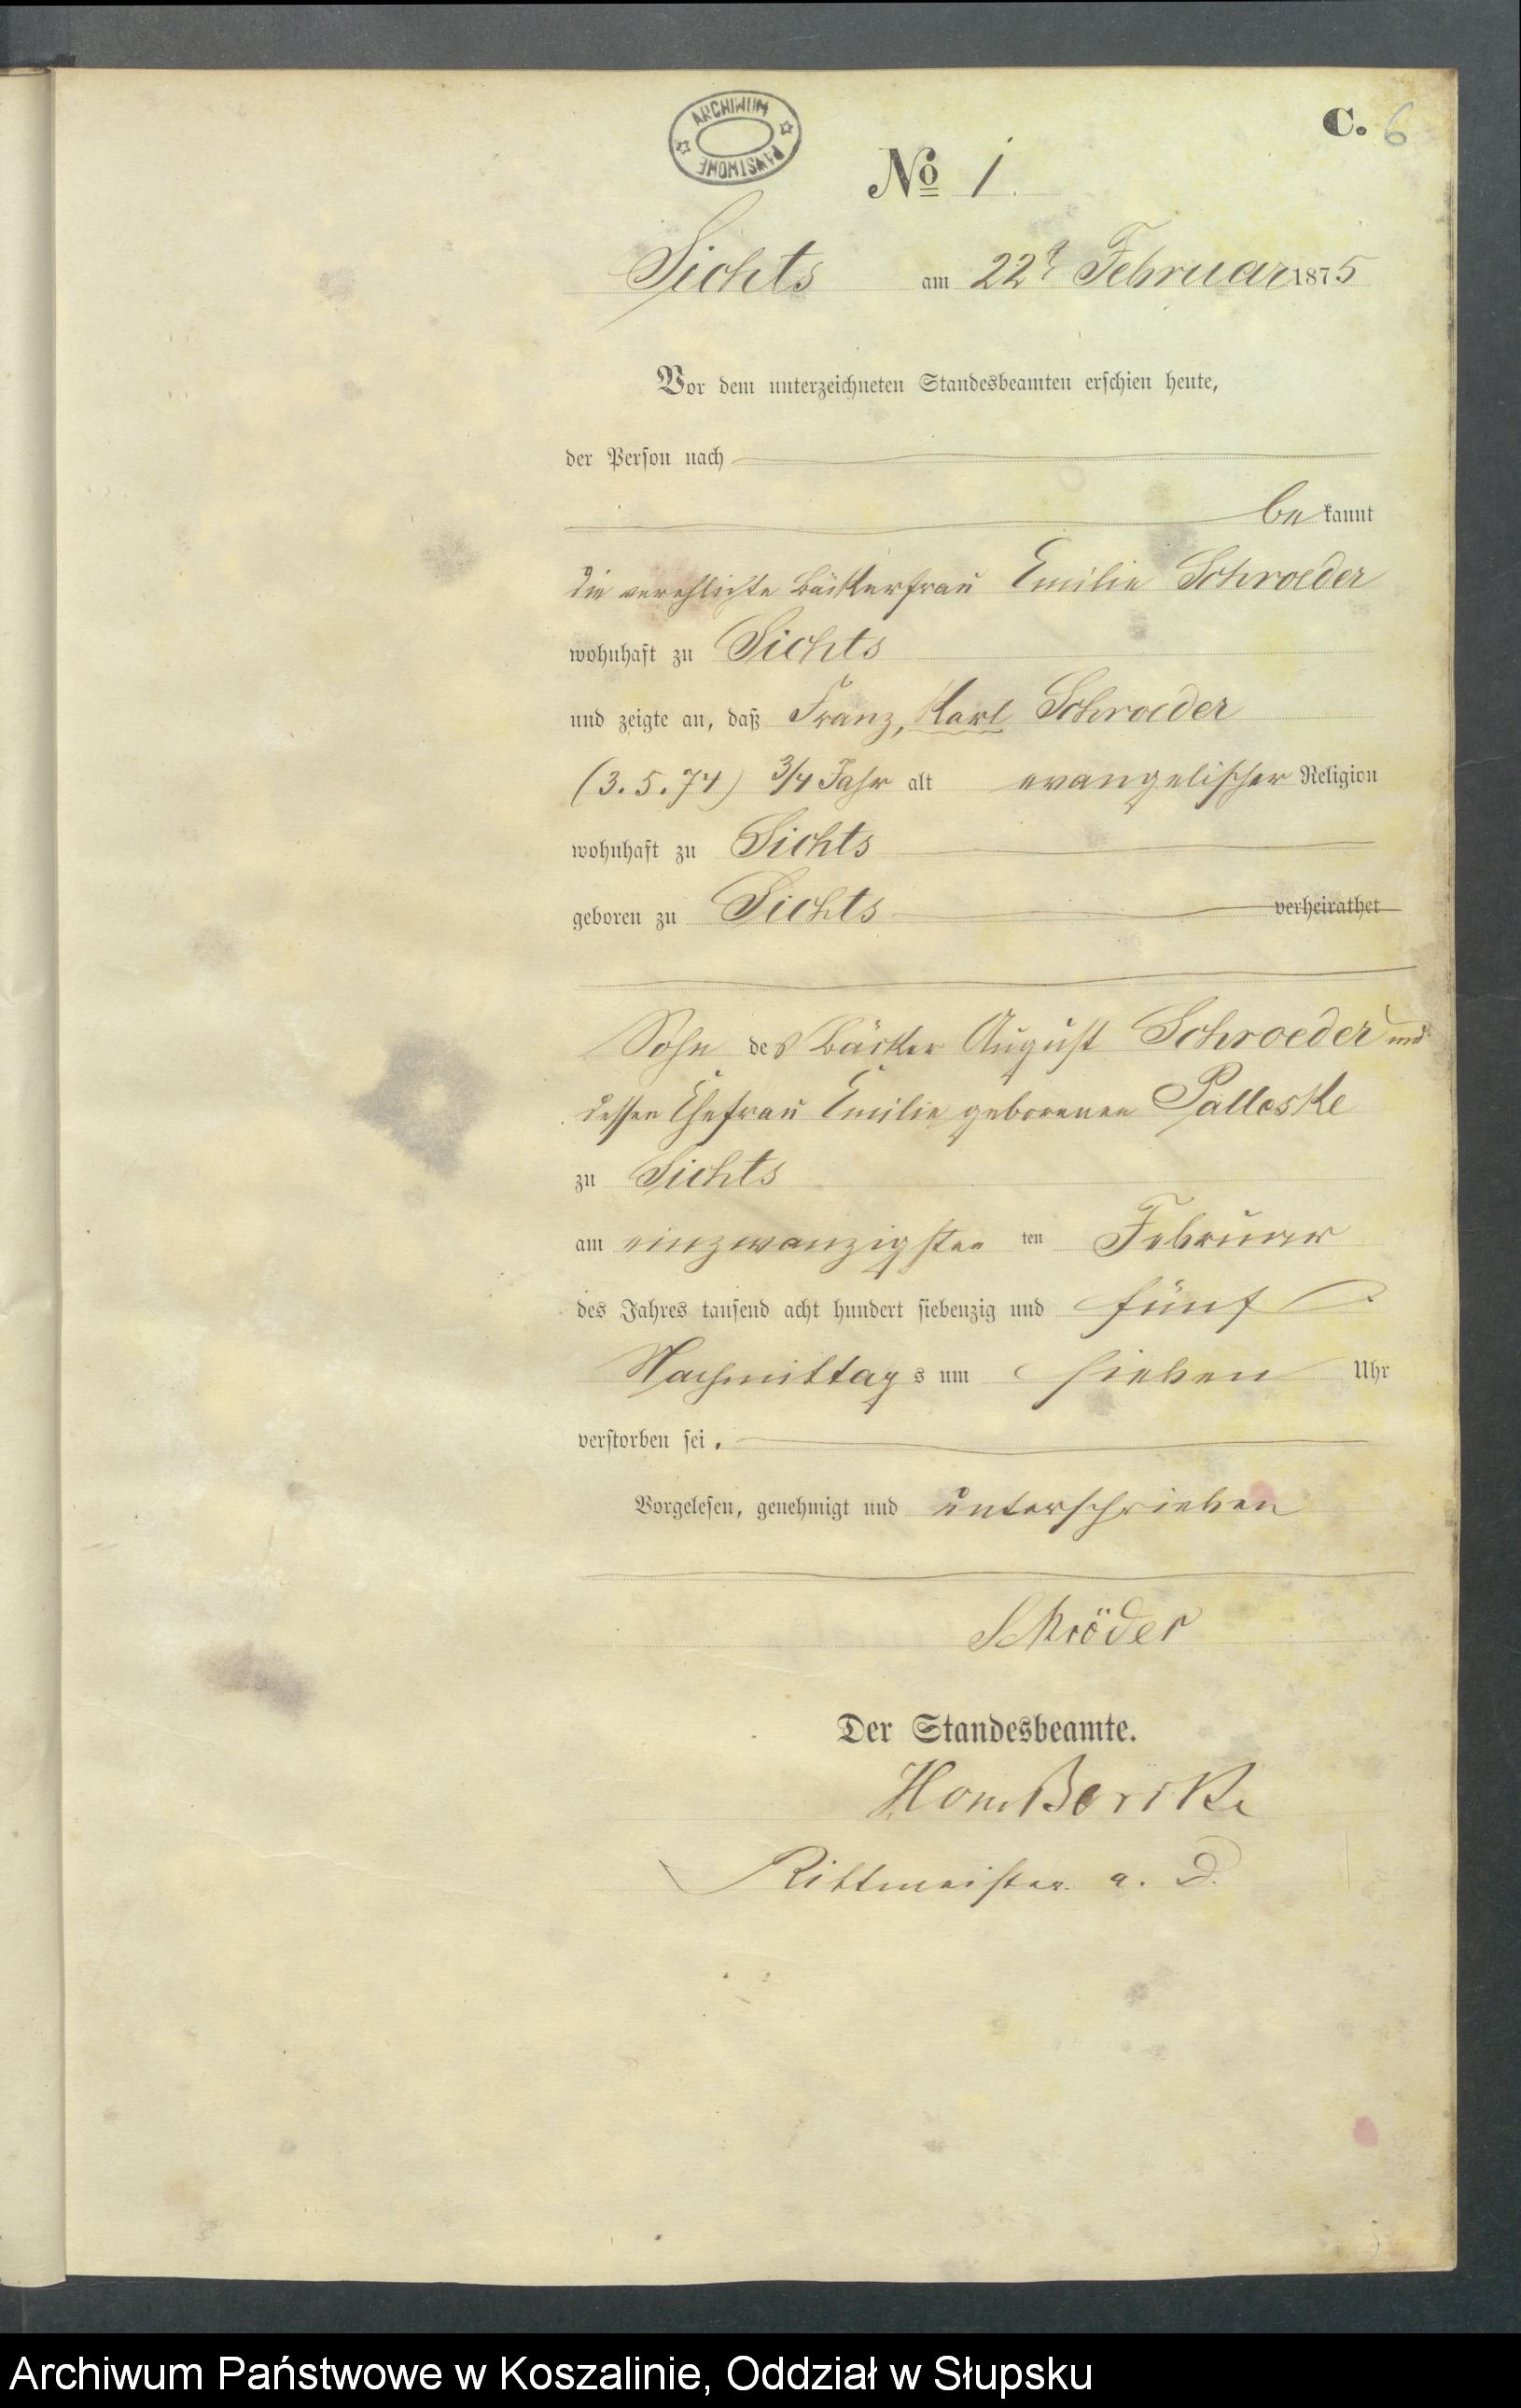 ARCHIWUM PAŃSTWOWE
C. 6
No 1.
Sichts am 22t Februar 1875
Vor dem unterzeichneten Standesbeamten erschien heute,
der Person nach
be kannt
die verehlichte Bäckerfrau Emilie Schroeder
wohnhaft zu Sichts
und zeigte an, daß Franz, Karl Schroeder
(3.5.74) 3/4 Jahr alt evangelischer Religion
wohnhaft zu Sichts
geboren zu Sichts verheirathet
Sohn des Bäcker August Schroeder und
dessen Ehefrau Emilie geborenen Palleske
zu Sichts
am einzwanzigsten ten Februar
des Jahres tausend acht hundert siebenzig und fünf
Nachmittag s um sieben Uhr
verstorben sei.
Vorgelesen, genehmigt und unterschrieben
Schröder
Der Standesbeamte.
Rittmeister a. D.
Archiwum Państwowe w Koszalinie, Oddział w Słupsku